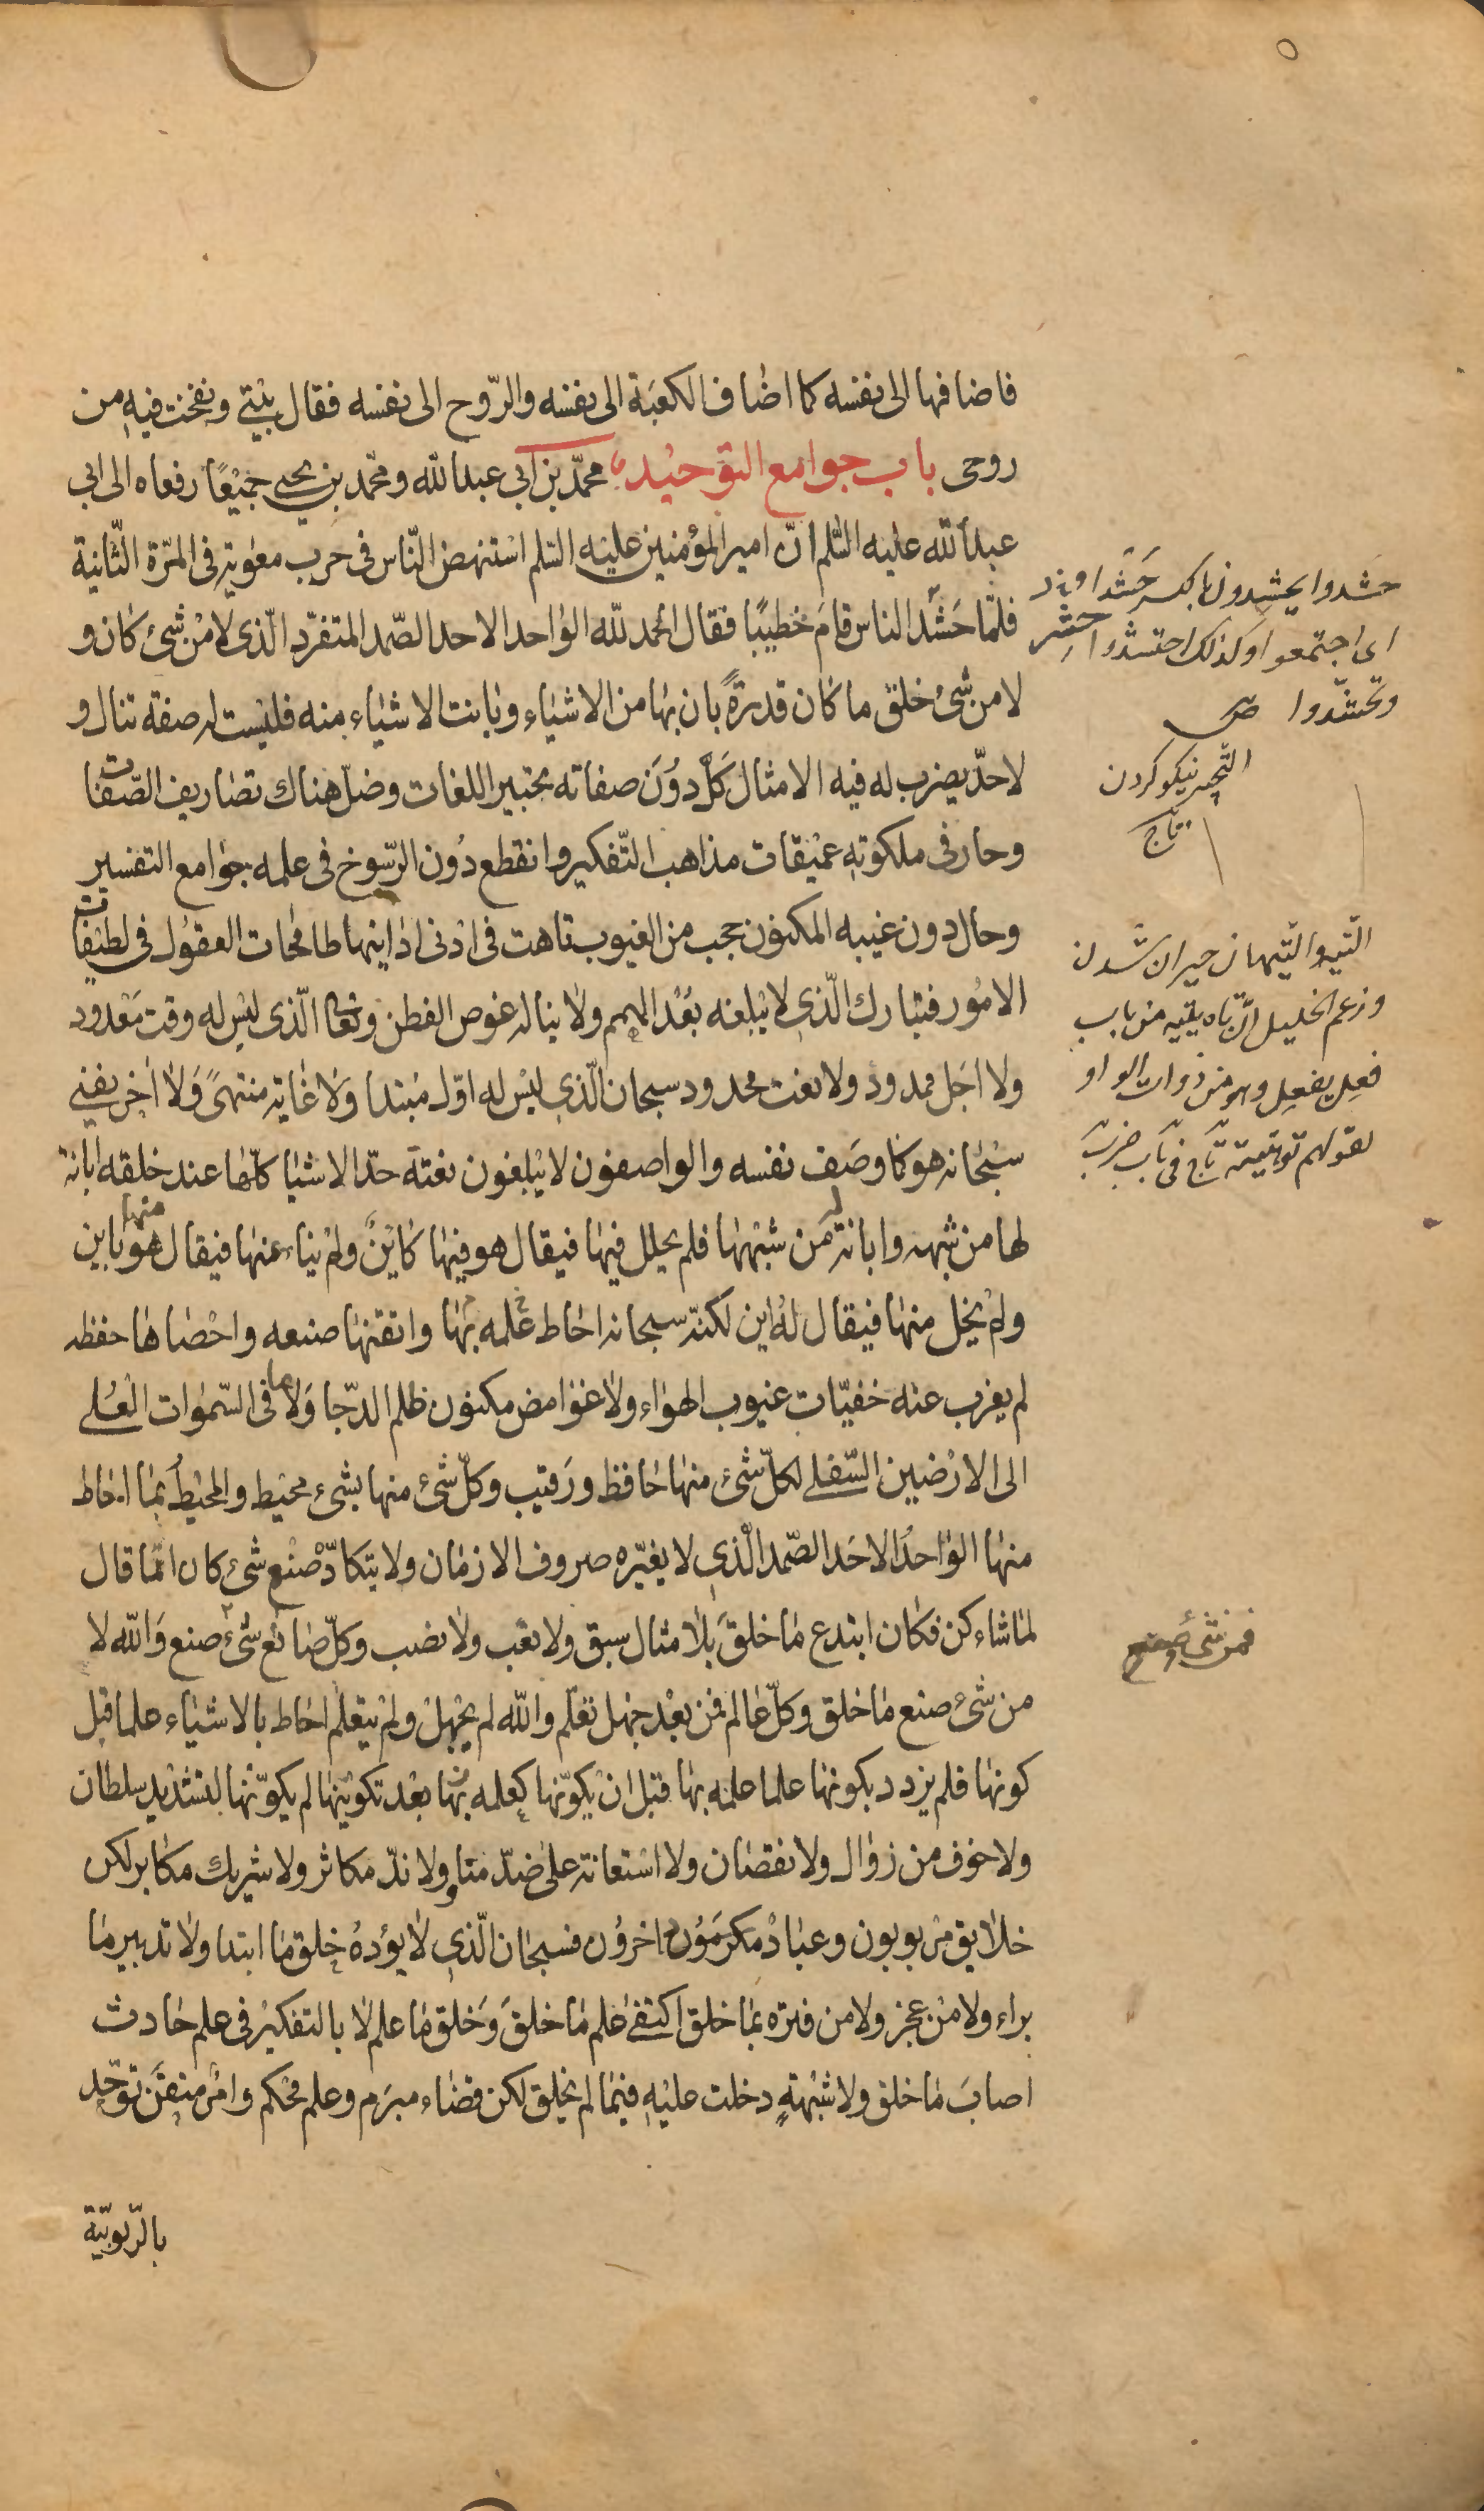 فاضافها الى نفسه كما اضاف الكعبة الى نفسه والرّوح الى نفسه فقال بيتي ونفخت فيه من
روحى باب جوامع التوحيد محمّد بن ابي عبدالله ومحمّد بن يحيى جميعًا رفعاه الى ابي
عبدالله عليه السّلم انّ امير المؤمنين عليه السّلم استنهض النّاس فى حرب معوية فى المرّة الثّانية
فلمّا حَشَدَ الناس قامَ خطيبًا فقال الحمد للّه الواحد الاحد الصّمد المتفرّد الّذى لا مِنْ شىْ كان و
لا من شىْ خلق ما كان قدرةً بان بها من الاشياء وبانت الاشياء منه فليست له صفة تنال و
لا حدّ يضرب له فيه الامثال كَلَّ دُوْنَ صفاته تحبير اللغات وضلّ هناك تصاريف الصّفات
وحار فى ملكوته عميقات مذاهب التّفكير وانقطع دُون الرّسوخ فى علمه جوامع التفسير
وحال دون غيبه المكنون حجب من الغيوب تاهت فى ادنى ادانيها طامحات العقول فى لطيفات
الامُور فتبارك الّذي لا يبلغه بُعْد الهمم ولا يناله غوص الفطن وتعالى الّذى ليس له وقت مَعْدود
ولا اجَل ممدود ولا نعت محدود سبحان الّذي ليْس له اوّل مبتدا وَلا غاية منتهىً وَلا اخر يفنى
سبْحانه هو كما وصَف نفسه والواصفون لا يبلغون نعتة حدّ الاشيا كلّها عند خلقه ابانة
لها من شبهه وابانة له من شبهها فلم يحلل فيها فيقال هو فيها كاينٌ ولم يناء عنها فيقال هو منها باين
ولم يخل منها فيقال لهُ اين لكنّه سبحانه احاط علمه بها واتقنها صنعه واحصاها حفظه
لم يعزب عنه خفيّات غيوب الهواء ولا غوامض مكنون ظلم الدّجا وَلا ما فى السّموات العُلى
الى الارضين السّفلى لكلّ شىْ منها حافظ ورَقيب وكلّ شىْ منها بشىْ محيط والمحيْطُ بما احاط
منها الواحدُ الاحَد الصّمد الّذي لا يغيّره صروف الازمان ولا يتكادّهْ صُنْع شىْ كان انّما قال
لما شاء كن فكان ابتدع ما خلقَ بلا مثال سبق ولا تعب ولا نصب وكلّ صانع شىْ صنع وَالله لا
من شىْ صنع ما خلق وكلّ عالم فمن بعْد جهل تعلّم والله لم يجْهلْ ولمْ يتعلّم احاط بالاشياء علما قبل
كونها فلم يزدد بكونها علما علمه بها قبل انْ يكوّنها كعلمه بها بعْد تكوينها لم يكوّنْها لتشْديد سلطان
ولا خوف من زوال ولا نقصان ولا استعانة على ضدّ مناو ولا ندّ مكاثر ولا شريك مكابر لكن
خلايق مرْبوبون وعبادْ مكرمَوُن داخروُن فسبحان الّذي لا يؤدهُ خلق ما ابتدا ولا تدبير ما
براء ولا منْ عجز ولا من فترة بما خلق اكتفى علم ما خلقَ وَخلق ما علم لا بالتفكيْر فى علم حادث
اصابَ ما خلق ولا شبْهةٍ دخلت عليْهِ فيما لم يخلق لكن قضاء مبرَم وعلم محكم وامْر متقن توحّد
بالرّبوبيّة
حشدوا يحشدون بالكسر حَشْدا
اى اجتمعوا وكذلك احتشدوا
وتحشّدوا ص
التّحبير نيكو كردن
تاج
التيه والتيهان حيران شدن
وزعم الخليل انّ تاه يتيه من باب
فعِل يفعِل وهو من ذوات الواو
لقولهم توّهته تاج فى باب ضرب
فمن شىْ صنع